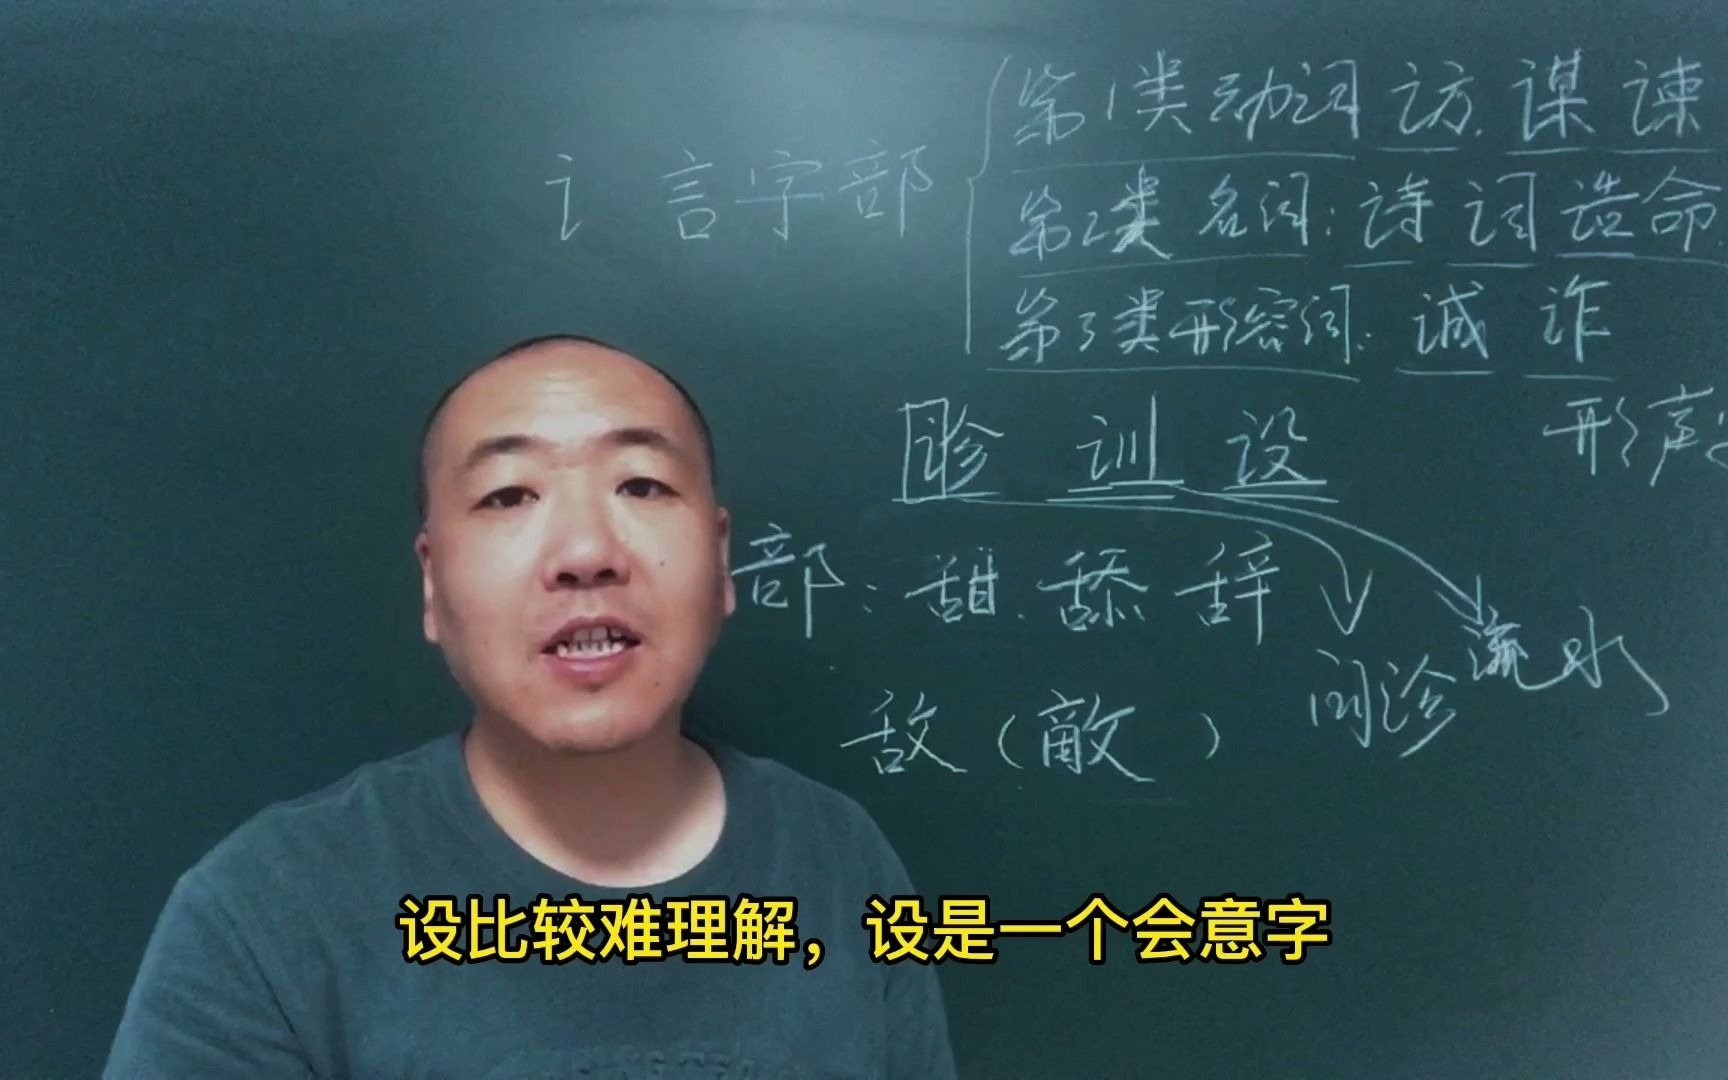 第1类动词 访 谋 谏
讠 言字部
第2类 名词: 诗 词 造命
第3类形容词: 诚 诈
形声
训 设
部: 甜 舔 辞
流水
问诊
敌 (敵)
设比较难理解，设是一个会意字